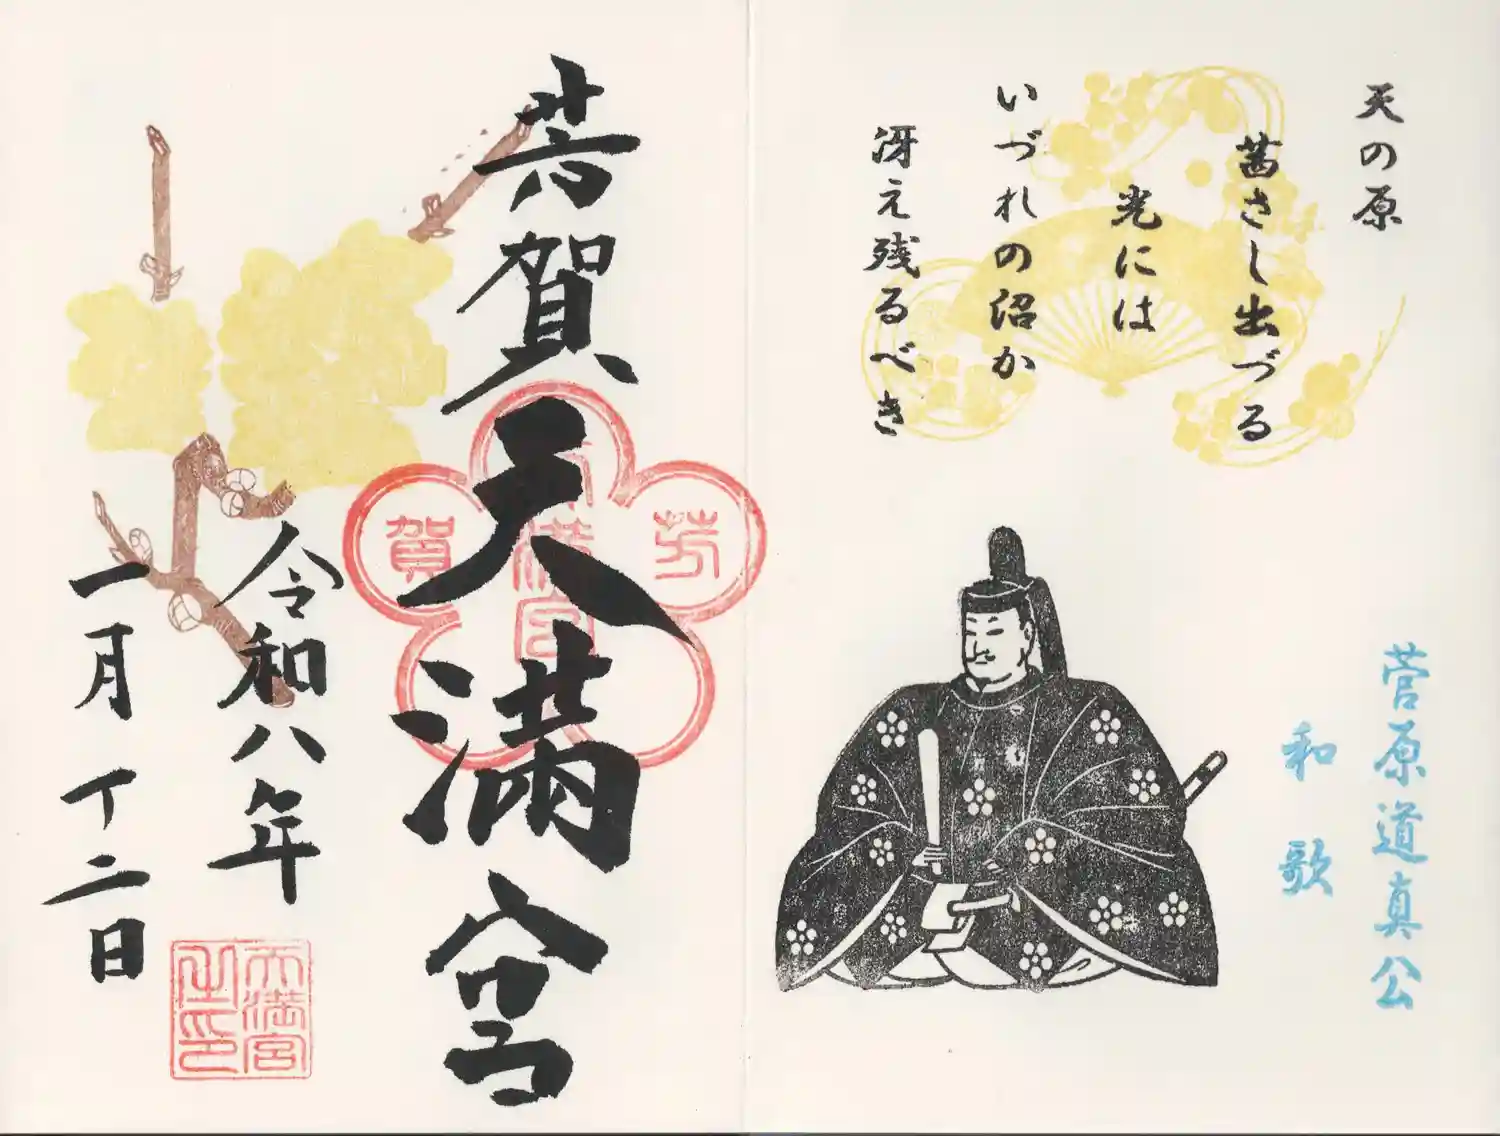 天の原
茜さし出づる
光には
いづれの沼か
冴え残るべき
菅原道真公
和歌
芳賀天満宮
芳
賀
令和八年
一月十二日
天満宮
之印